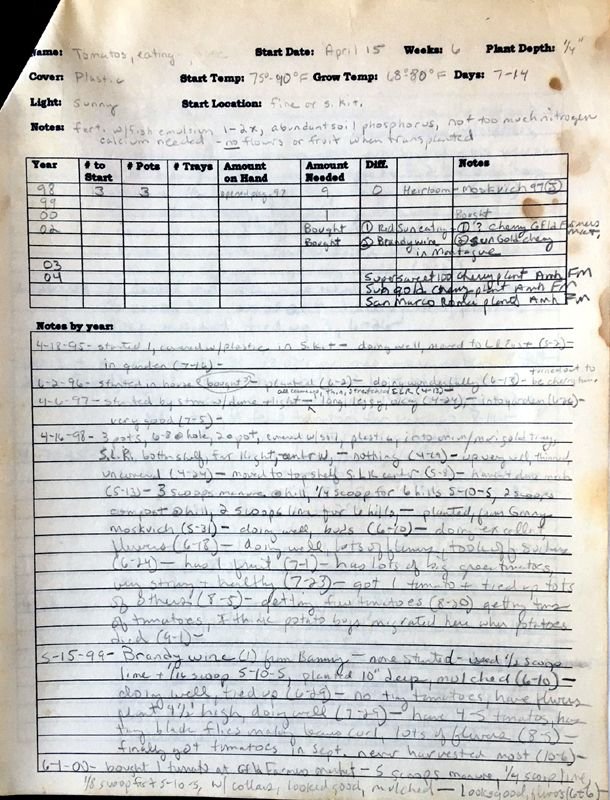 Name: Tomatos, eating Start Date: April 15 Weeks: 6 Plant Depth: 1/4"
Cover: Plastic Start Temp: 75°-90°F Grow Temp: 68°-80°F Days: 7-14
Light: Sunny Start Location: fine or S.Kit.
Notes: fert. w/fish emulsion 1-2x, abundant soil phosphorus, not too much nitrogen
calcium needed - no flowers or fruit when transplanted
Year # to Start # Pots # Trays Amount on Hand Amount Needed Diff. Notes
98 3 3 97 9 0 Heirloom - Moskvich 97
99
00 1 Bought
02 Bought ① Red Sun eating - ① ? Cherry Gfld Farmers
Bought ② Brandywine ② Sun Gold cherry
in Montague
03
04 Supersweet 100 cherry plant Amh FM
Sun gold cherry plant Amh FM
San Marco Roma plant Amh FM
Notes by year:
4-18-95 - started 1, covered w/plastic in S.Kit - doing well, moved to (5-2) -
in garden (7-16) -
turned out to
6-2-96 - started in house (bought?) - planted (6-2) - doing wonderfully (6-18) - be cherry tom.
4-6-97 - started by light - long, leggy, (4-24), - into garden (6-26) -
very good (7-5) -
4-16-98 - 3 pots, 6-8 @ hole, 20 pot, covered w/soil, plastic, into tray,
S.L.R. both shelf, far right, - nothing (4-19) - up very well, thinned
uncovered (4-24) - moved to top shelf S.L.R. (5-8) -
(5-13) - 3 scoops manure @ hill, 1/4 scoop for 6 hills 5-10-5, 2 scoops
compost @ hill, 2 scoops lime for 6 hills - planted, from Granny
moskvich (5-31) - doing well, buds (6-10) - doing excellent
flowers (6-18) - doing well, lots of flowers, took off suckers
(6-24) - has 1 fruit (7-1) - has lots of big green tomatoes,
very strong + healthy (7-23) - got 1 tomato + tied up lots
of others (8-5) - getting few tomatoes (8-20) getting tons
of tomatoes, I think potato bugs migrated here when potatoes
died (9-1) -
5-15-99 - Brandywine (1) from - none started - used 1/2 scoop
lime + 1/16 scoop 5-10-5, planted 10" deep, mulched (6-10) -
doing well, tied up (6-29) - no tiny tomatoes, have flowers
plant 4 1/2' high, doing well (7-29) - have 4-5 tomatoes, have
tiny black flies making leaves curl, lots of flowers (8-5) -
finally got tomatoes in Sept, never harvested most (10-6) -
6-1-00 - bought 1 tomato at Gfld Farmers market - 5 scoops manure, 1/4 scoop lime,
1/8 scoop fert 5-10-5, w/ collars, looked good, mulched - looks good, flowers (6-6)